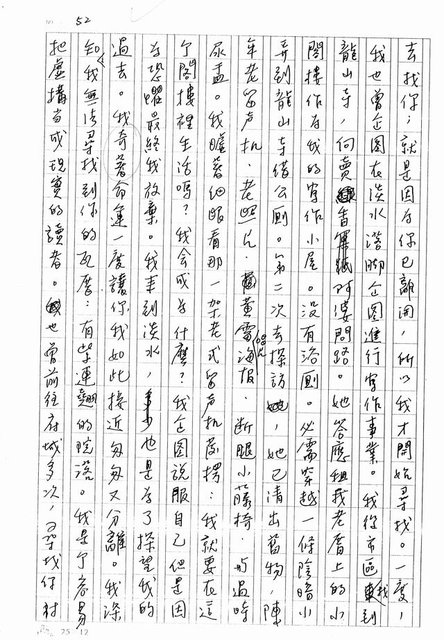 52
去找你；就是因为你已離開，所以我才開始尋找。一度，
我也曾企圖在淡水落腳企圖進行寫作事業。我從市區我到
龍山寺，向賣香算阿婆問路。她答應租我老厝上的小
閣樓作为我的寫作小屋。没有浴厠。必需穿越一條陰暗小
弄到龍山寺借公厠。第二次去探訪，她已清出舊物，陳
年老留声机、老照片、黃電影海报、断腿小藤椅、与過時
尿盂。我瞻著細瞧看那一架老式留声机發愣：我就要在這
个閣樓裡生活嗎？我会成为什麼？我企圖說服自己但是因
为恐懼最終我放棄。我来到淡水，多少也是为了探望我的
過去。我奇著命運一度讓你我如此接近匆匆又分離。我深
知我無法尋找到你的瓦厝：有柴連翹的院落。我是个容易
把虛構当成現實的讀者。也曾前往府城多次，尋找你村
75 12